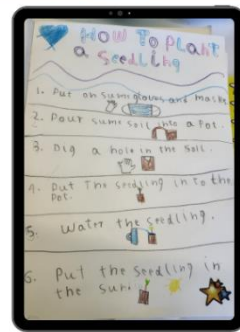 How To Plant
a Seedling
1. Put on sum gloves and masks
2. Pour sume soil into a Pot.
3. Dig a hole in the soil.
4. Put the seedling in to the
Pot.
5. Water the seedling.
6. Put the seedling in
the sun.